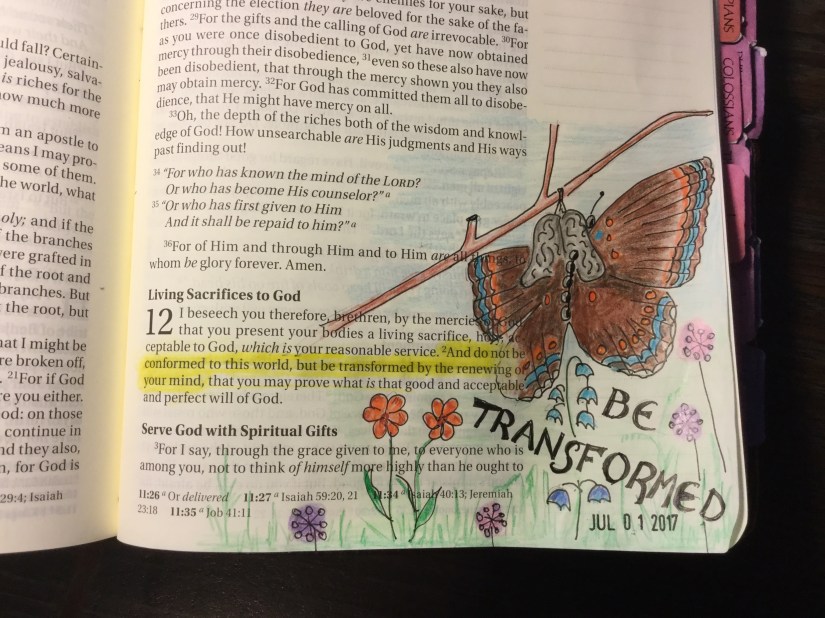 uld fall? Certain-
jealousy, salva-
is riches for the
ow much more
m an apostle to
eans I may pro-
some of them.
he world, what
oly; and if the
f the branches
ere grafted in
f the root and
branches. But
the root, but
at I might be
re broken off,
. 21For if God
re you either.
od: on those
continue in
nd they also,
n, for God is
29:4; Isaiah
enemies for your sake, but
concerning the election they are beloved for the sake of the fa-
thers. 29For the gifts and the calling of God are irrevocable. 30For
as you were once disobedient to God, yet have now obtained
mercy through their disobedience, 31even so these also have now
been disobedient, that through the mercy shown you they also
may obtain mercy. 32For God has committed them all to disobe-
dience, that He might have mercy on all.
33Oh, the depth of the riches both of the wisdom and knowl-
edge of God! How unsearchable are His judgments and His ways
past finding out!
34 "For who has known the mind of the LORD?
Or who has become His counselor?" a
35 "Or who has first given to Him
And it shall be repaid to him?" a
36For of Him and through Him and to Him are all things, to
whom be glory forever. Amen.
Living Sacrifices to God
12 I beseech you therefore, brethren, by the mercies
that you present your bodies a living sacrifice, holy, ac-
ceptable to God, which is your reasonable service. 2And do not be
conformed to this world, but be transformed by the renewing of
your mind, that you may prove what is that good and acceptable
and perfect will of God.
Serve God with Spiritual Gifts
3For I say, through the grace given to me, to everyone who is
among you, not to think of himself more highly than he ought to
11:26 a Or delivered 11:27 a Isaiah 59:20, 21 11:34 a Isaiah 40:13; Jeremiah
23:18 11:35 a Job 41:11
BE
TRANSFORMED
JUL 01 2017
COLOSSIANS